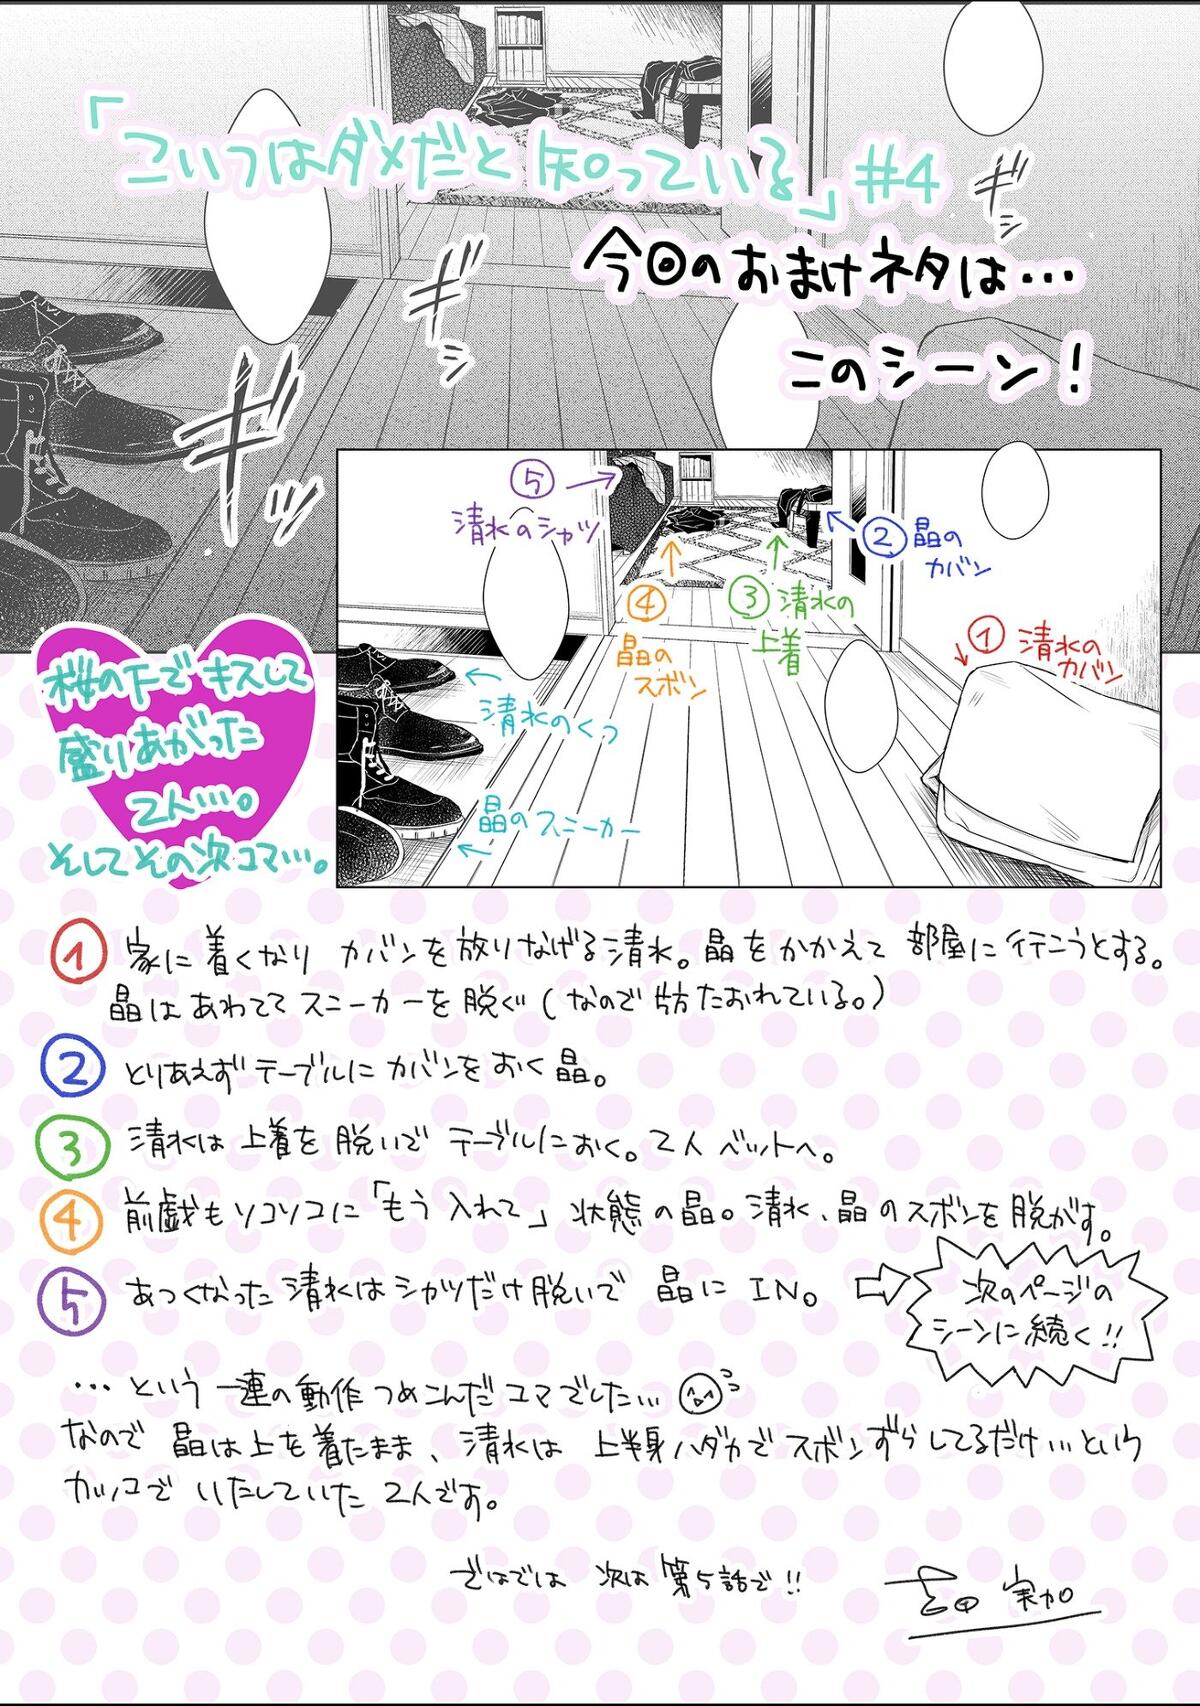 「こいつはダメだと知っている」#4
今回のおまけネタは…
このシーン！
ギシ
ギシ
ギシッ
⑤
清水のシャツ
②晶の
カバン
④
晶の
ズボン
③清水の
上着
①清水の
カバン
清水のくつ
晶のスニーカー
桜の下でキスして
盛りあがった
2人…。
そしてその次コマ…。
① 家に着くなりカバンを放りなげる清水。晶をかかえて部屋に行こうとする。
晶はあわててスニーカーを脱ぐ(なので片方たおれている。)
② とりあえずテーブルにカバンをおく晶。
③ 清水は上着を脱いでテーブルにおく。2人ベットへ。
④ 前戯もソコソコに「もう入れて」状態の晶。清水、晶のズボンを脱がす。
⑤ あつくなった清水はシャツだけ脱いで晶にIN。
次のページの
シーンに続く!!
…という一連の動作つめこんだコマでした…
なので晶は上を着たまま、清水は上半身ハダカでズボンずらしてるだけ…という
カッコでいたしていた2人です。
ではでは次は第5話で!!
吉田実加